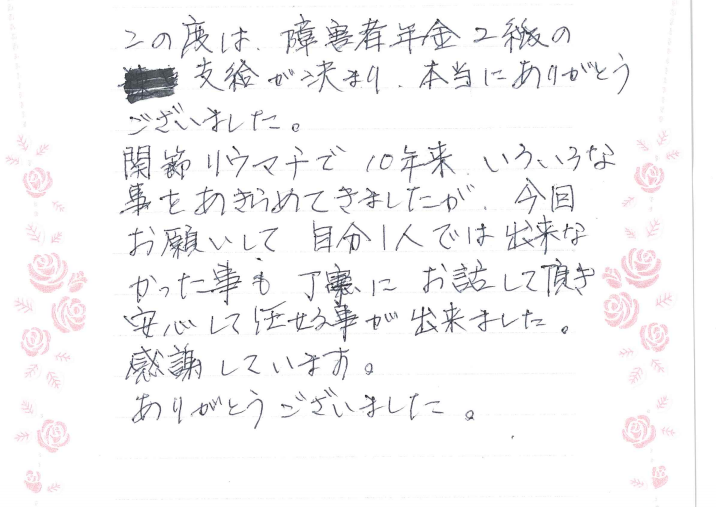 この度は、障害者年金2級の
支給が決まり、本当にありがとう
ございました。
関節リウマチで 10年来、いろいろな
事をあきらめてきましたが、今回
お願いして 自分1人では出来な
かった事も 丁寧に お話して頂き
安心して任せる事が出来ました。
感謝しています。
ありがとうございました。